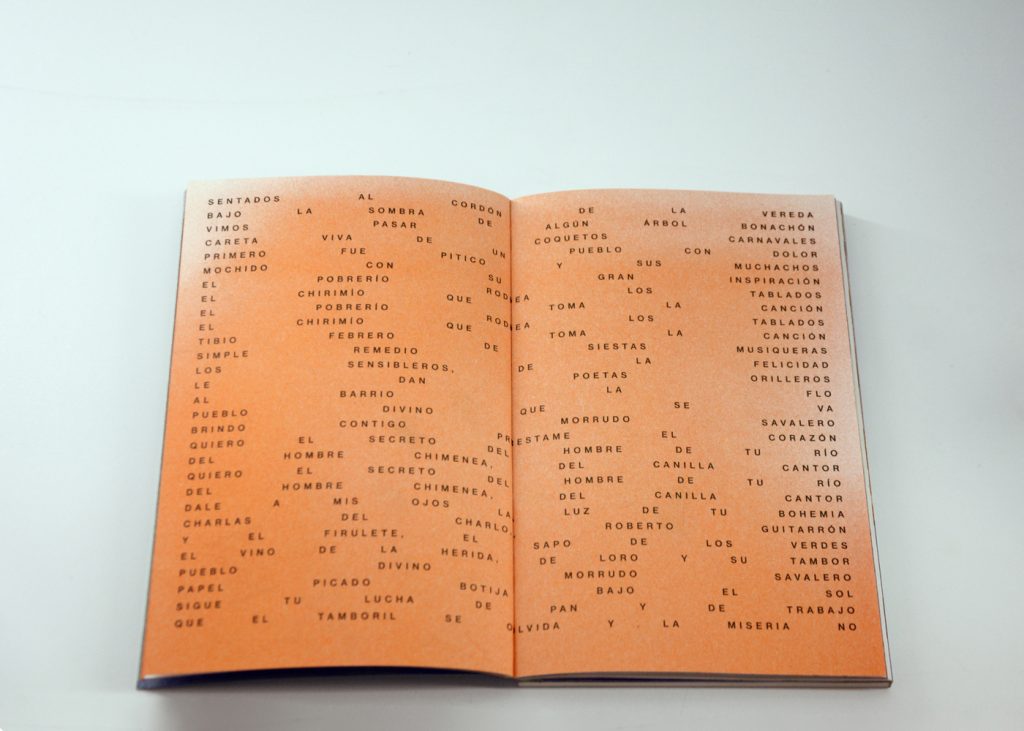 SENTADOS AL CORDÓN DE LA VEREDA
BAJO LA SOMBRA DE ALGÚN ÁRBOL BONACHÓN
VIMOS PASAR COQUETOS CARNAVALES
CARETA VIVA DE UN PUEBLO CON DOLOR
PRIMERO FUE PITICO Y SUS MUCHACHOS
MOCHIDO CON SU GRAN INSPIRACIÓN
EL POBRERÍO RODEA LOS TABLADOS
EL CHIRIMÍO QUE TOMA LA CANCIÓN
EL POBRERÍO RODEA LOS TABLADOS
EL CHIRIMÍO QUE TOMA LA CANCIÓN
TIBIO FEBRERO DE SIESTAS MUSIQUERAS
SIMPLE REMEDIO DE LA FELICIDAD
LOS SENSIBLEROS, POETAS ORILLEROS
LE DAN LA FLO
AL BARRIO QUE SE VA
PUEBLO DIVINO MORRUDO SAVALERO
BRINDO CONTIGO PRESTAME EL CORAZÓN
QUIERO EL SECRETO DEL HOMBRE DE TU RÍO
DEL HOMBRE CHIMENEA, DEL CANILLA CANTOR
QUIERO EL SECRETO DEL HOMBRE DE TU RÍO
DEL HOMBRE CHIMENEA, DEL CANILLA CANTOR
DALE A MIS OJOS LA LUZ DE TU BOHEMIA
CHARLAS DEL CHARLO ROBERTO GUITARRÓN
Y EL FIRULETE, EL SAPO DE LOS VERDES
EL VINO DE LA HERIDA, DE LORO Y SU TAMBOR
PUEBLO DIVINO MORRUDO SAVALERO
PAPEL PICADO BOTIJA BAJO EL SOL
SIGUE TU LUCHA DE PAN Y DE TRABAJO
QUE EL TAMBORIL SE OLVIDA Y LA MISERIA NO